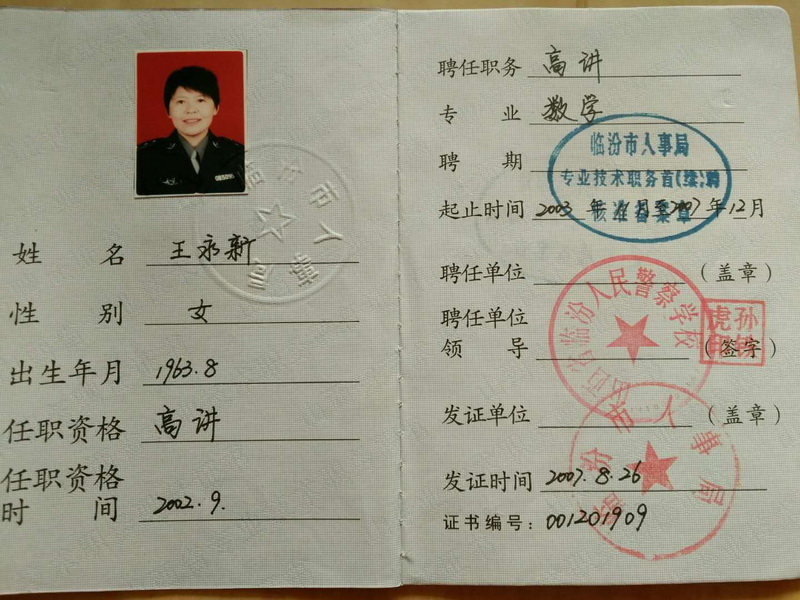 姓名 王永新
性别 女
出生年月 1963.8
任职资格 高讲
任职资格
时间 2002.9.
聘任职务 高讲
专业 数学
聘期
起止时间 2003年 月至2007年12月
临汾市人事局
专业技术职务首(续)聘
核准备案章
聘任单位 (盖章)
聘任单位
领导 (签字)
临汾人民警察学校
发证单位 (盖章)
临汾市人事局
发证时间 2007.8.26
证书编号: 001201909